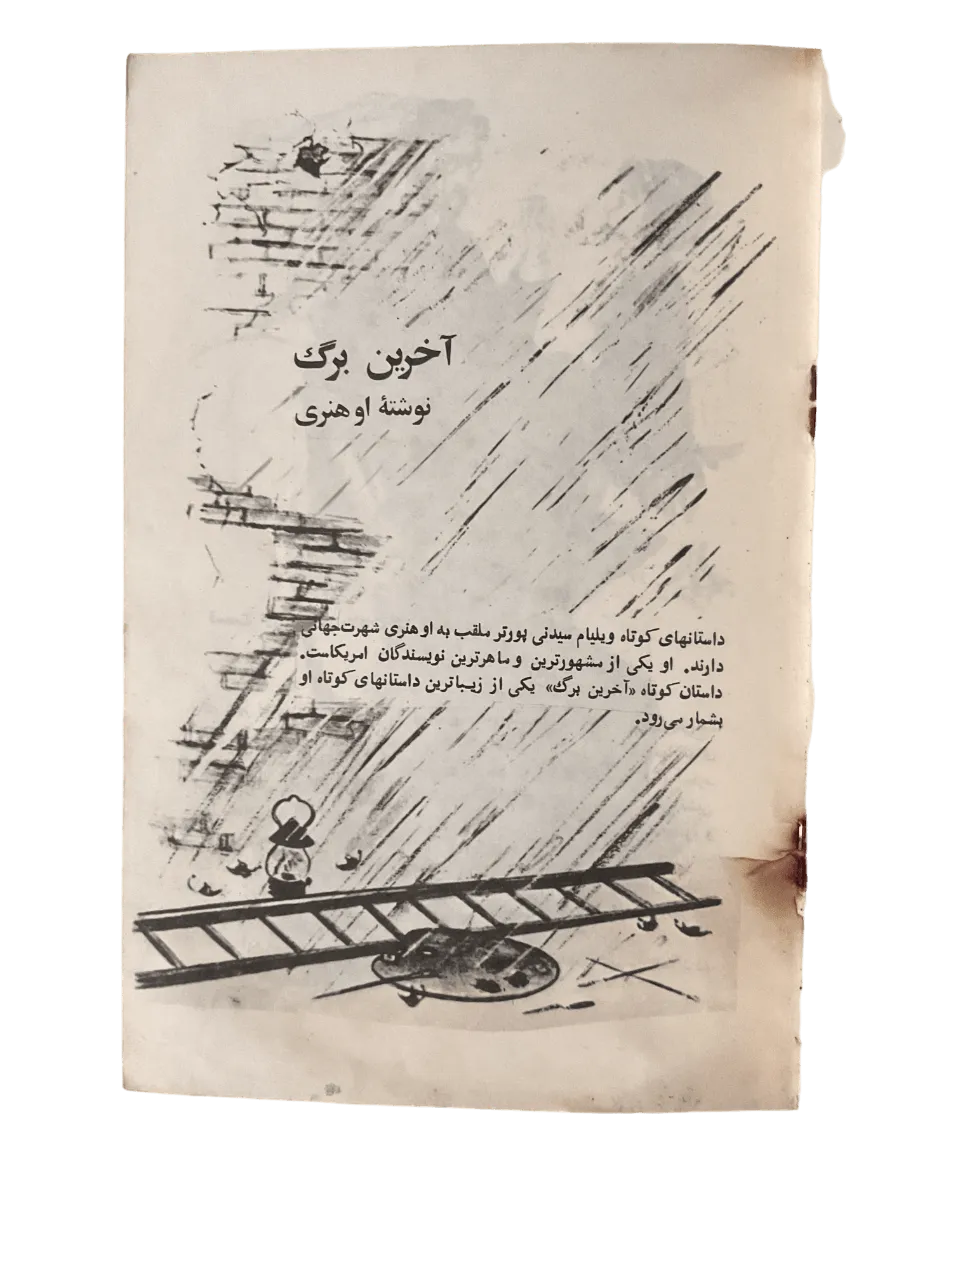 آخرین برگ
نوشتهٔ او هنری
داستانهای کوتاه ویلیام سیدنی پورتر ملقب به او هنری شهرت‌جهانی
دارند. او یکی از مشهورترین و ماهرترین نویسندگان امریکاست.
داستان کوتاه «آخرین برگ» یکی از زیباترین داستانهای کوتاه او
بشمار می‌رود.